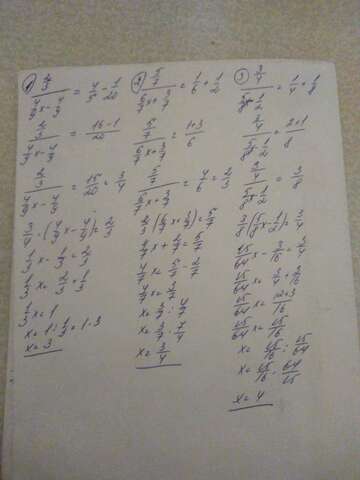 1) (2/3)/(4/9 x - 4/9) = 4/5 - 1/20
(2/3)/(4/9 x - 4/9) = (16-1)/20
(2/3)/(4/9 x - 4/9) = 15/20 = 3/4
3/4 · (4/9 x - 4/9) = 2/3
1/3 x - 1/3 = 2/3
1/3 x = 2/3 + 1/3
1/3 x = 1
x = 1 : 1/3 = 1 · 3
x = 3
2) (5/7)/(6/7 x + 3/7) = 1/6 + 1/2
(5/7)/(6/7 x + 3/7) = (1+3)/6
(5/7)/(6/7 x + 3/7) = 4/6 = 2/3
2/3 (6/7 x + 3/7) = 5/7
4/7 x + 2/7 = 5/7
4/7 x = 5/7 - 2/7
4/7 x = 3/7
x = 3/7 : 4/7
x = 3/7 · 7/4
x = 3/4
3) (3/4)/(5/8 x - 1/2) = 1/4 + 1/8
(3/4)/(5/8 x - 1/2) = (2+1)/8
(3/4)/(5/8 x - 1/2) = 3/8
3/8 (5/8 x - 1/2) = 3/4
15/64 x - 3/16 = 3/4
15/64 x = 3/4 + 3/16
15/64 x = (12+3)/16
15/64 x = 15/16
x = 15/16 : 15/64
x = 15/16 · 64/15
x = 4